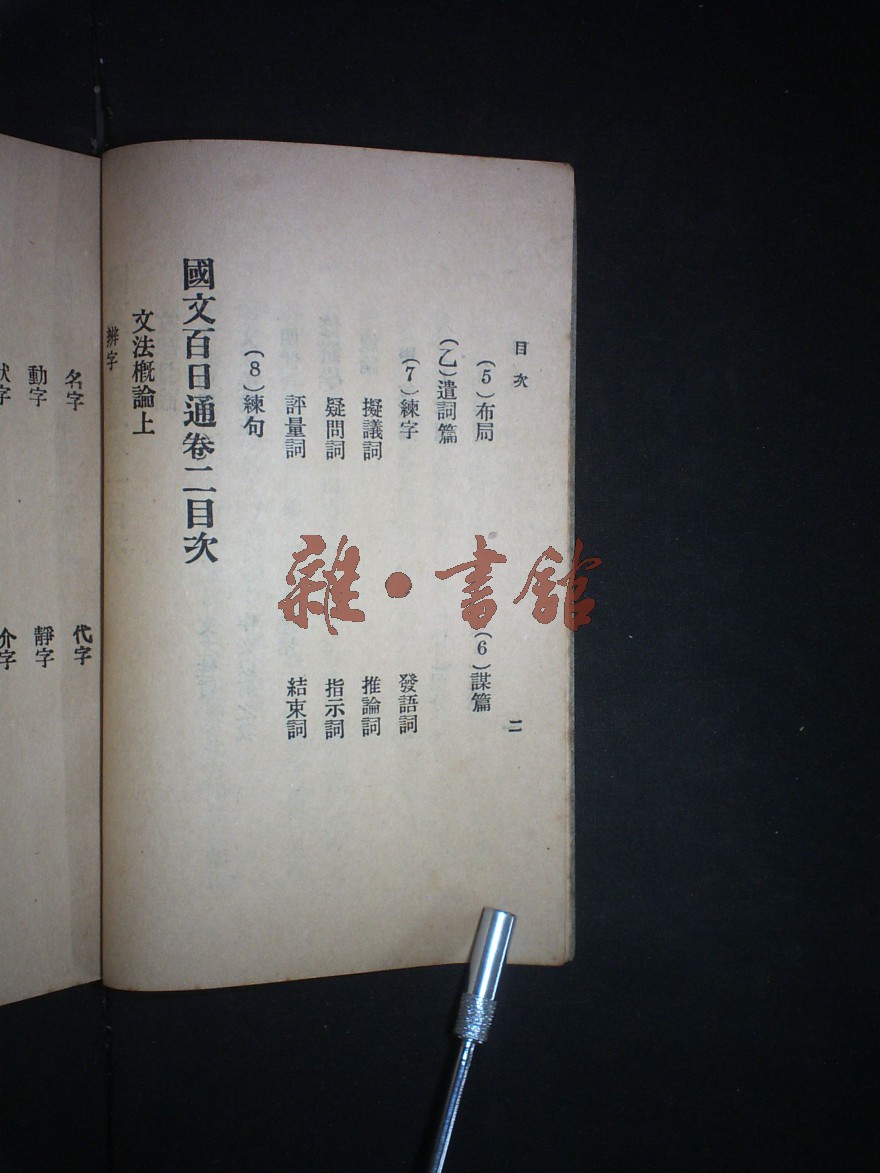 目次
二
(5)布局
(6)謀篇
(乙)遣詞篇
(7)練字
發語詞
擬議詞
推論詞
疑問詞
指示詞
評量詞
結束詞
(8)練句
國文百日通卷二目次
文法概論上
辨字
名字
代字
動字
靜字
狀字
介字
雜·書館